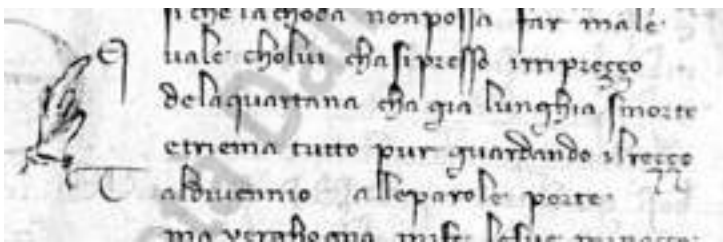 si che la choda non possa far male
Q uale cholui cha si presso impreçço
dela quartana cha gia lunghia smorte
etriema tutto pur guardando il reççо
T al diuennio alle parole porte
ma verghogna mi fe le sue minacce